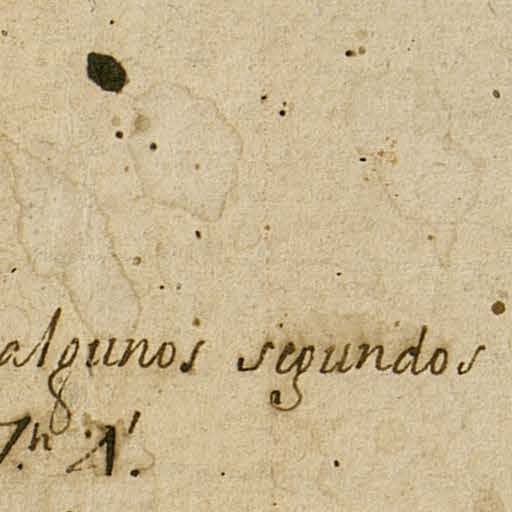 algunos segundos